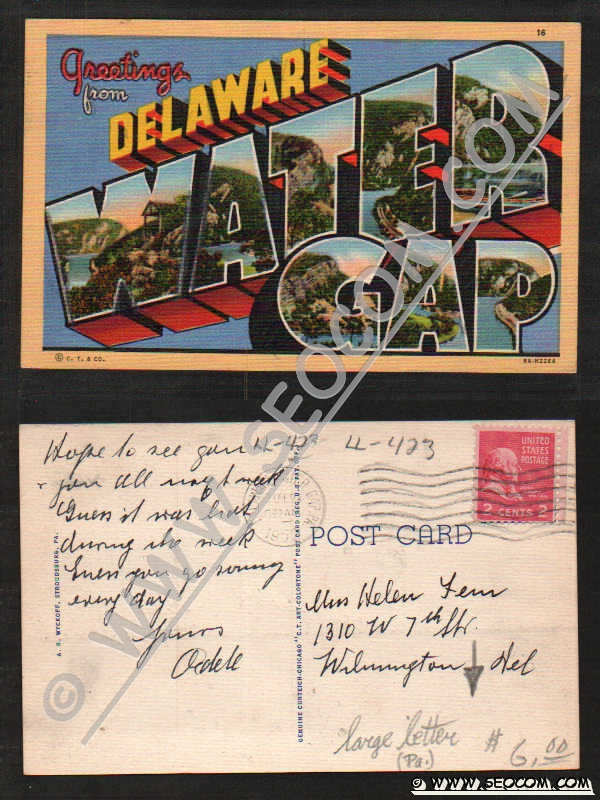 16
Greetings
from
DELAWARE
WATER
GAP
© C. T. & CO.
8A-H2268
Hope to see you
you all next week
Guess it was hot
during the week
Guess you go swimming
every day
Yours
Odell
LL-423 LL-423
UNITED
STATES
POSTAGE
2 CENTS 2
POST CARD
A. R. WYCKOFF, STROUDSBURG, PA.
GENUINE CURTEICH-CHICAGO "C.T. ART-COLORTONE" POST CARD (REG. U.S. PAT. OFF.)
Miss Helen
1310 W 7th Str.
Wilmington Del
large letter
(Pa.)
# 6.00
© WWW.SEOCOM.COM
© WWW.SEOCOM.COM